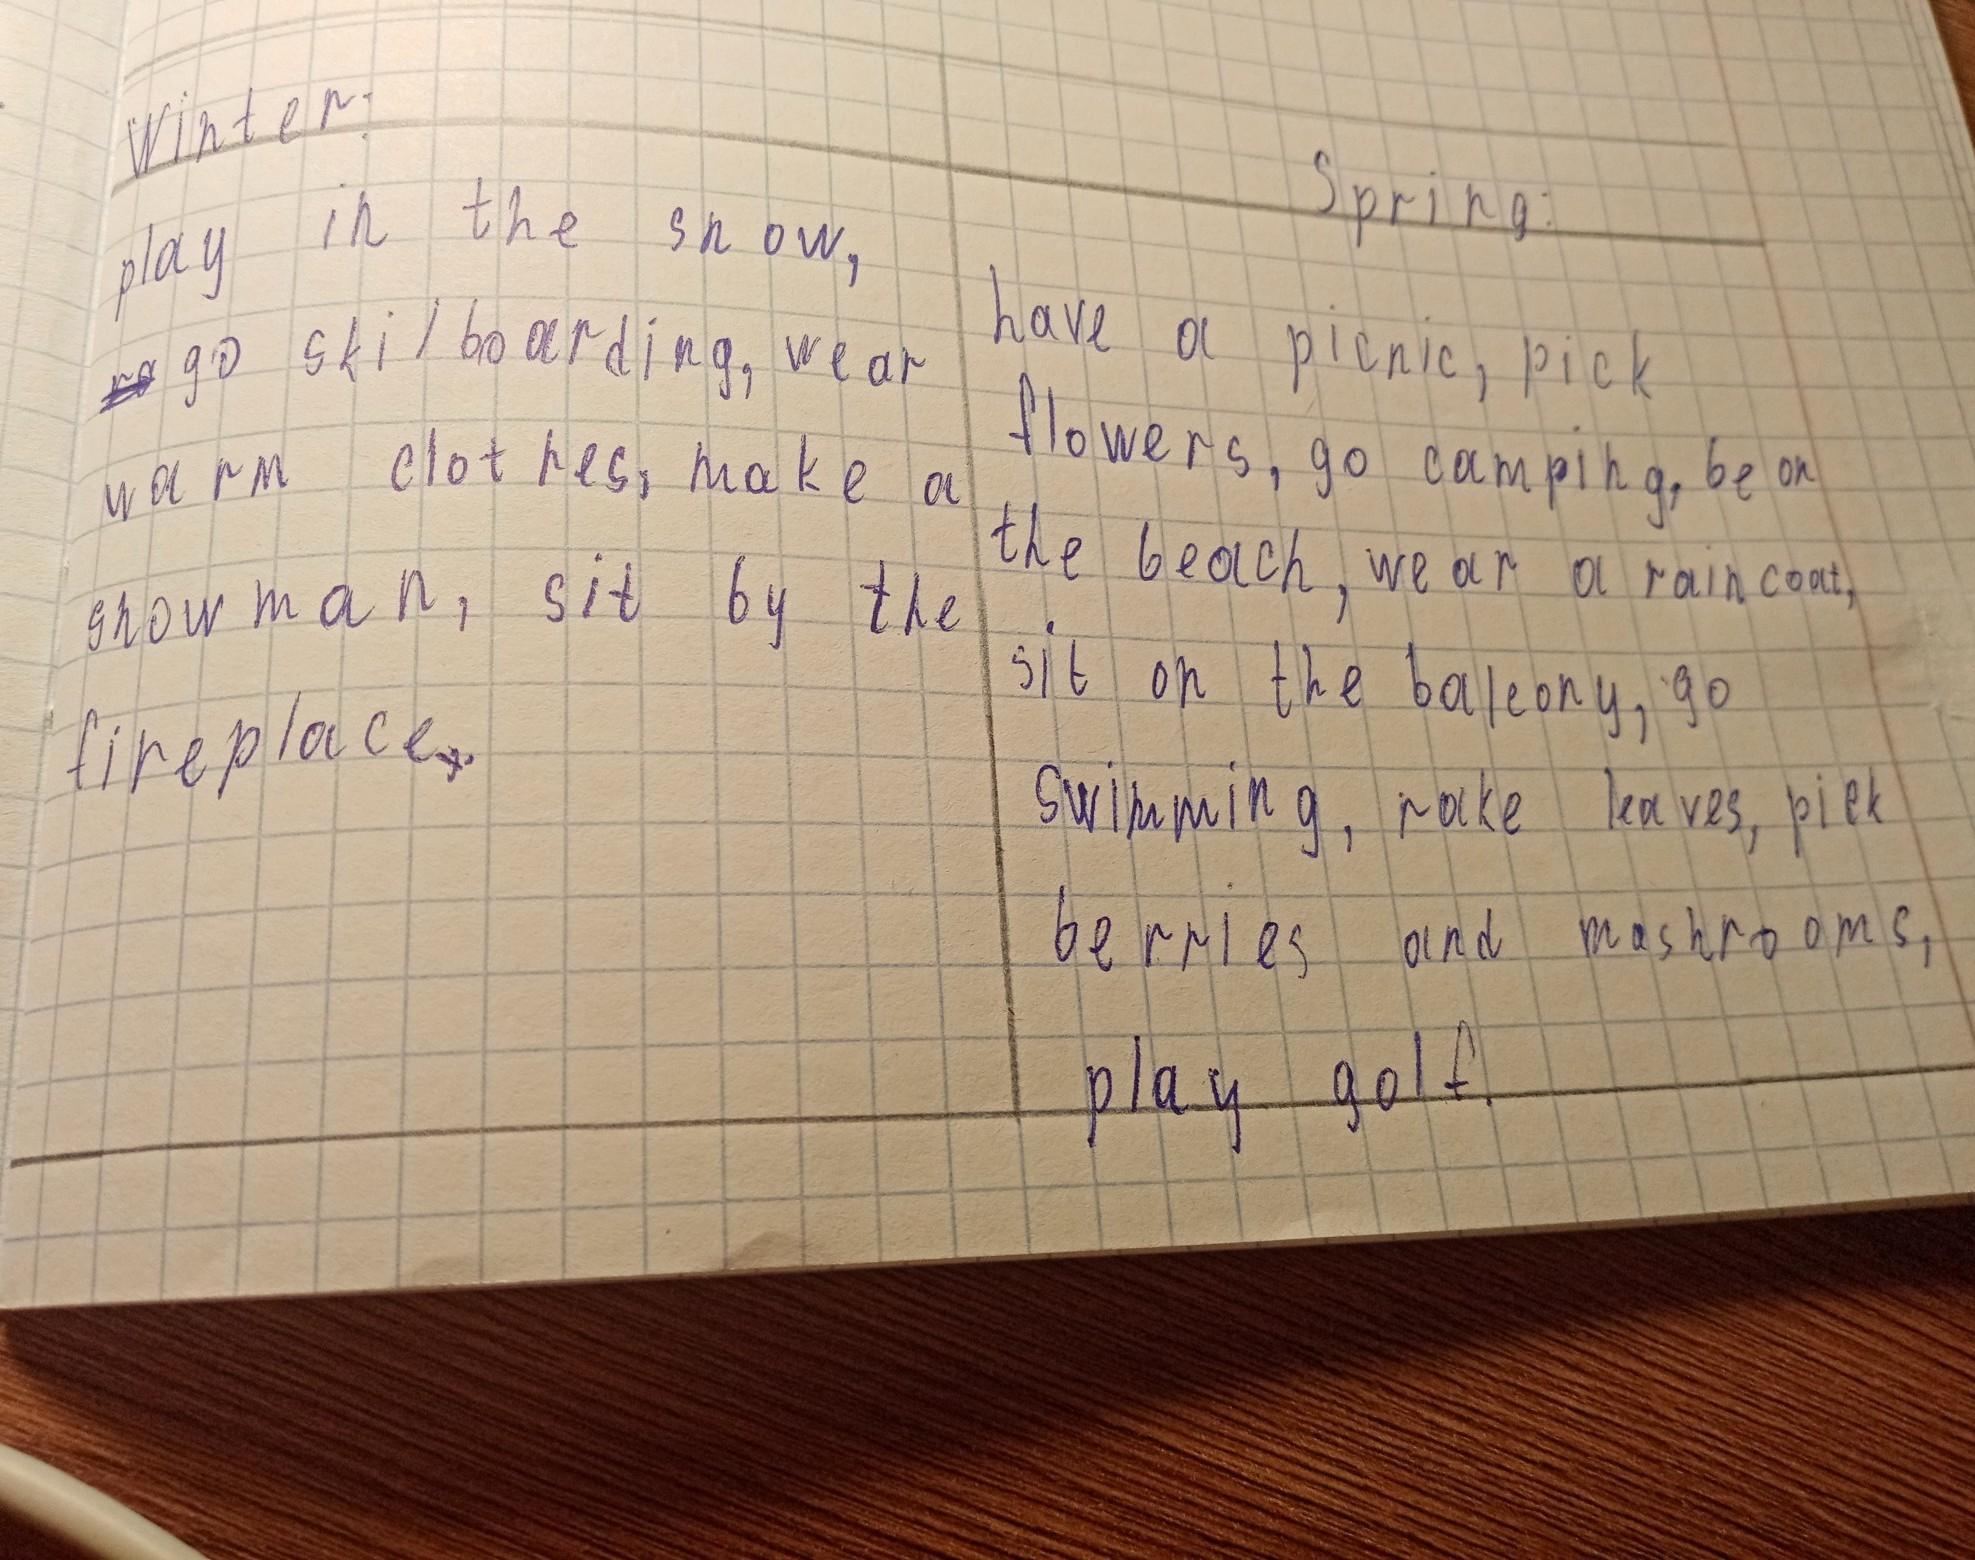 Winter:
play in the snow,
go ski/boarding, wear
warm clothes, make a
snowman, sit by the
fireplace.
Spring:
have a picnic, pick
flowers, go camping, be on
the beach, wear a raincoat,
sit on the balcony, go
swimming, rake leaves, pick
berries and mashrooms,
play golf.